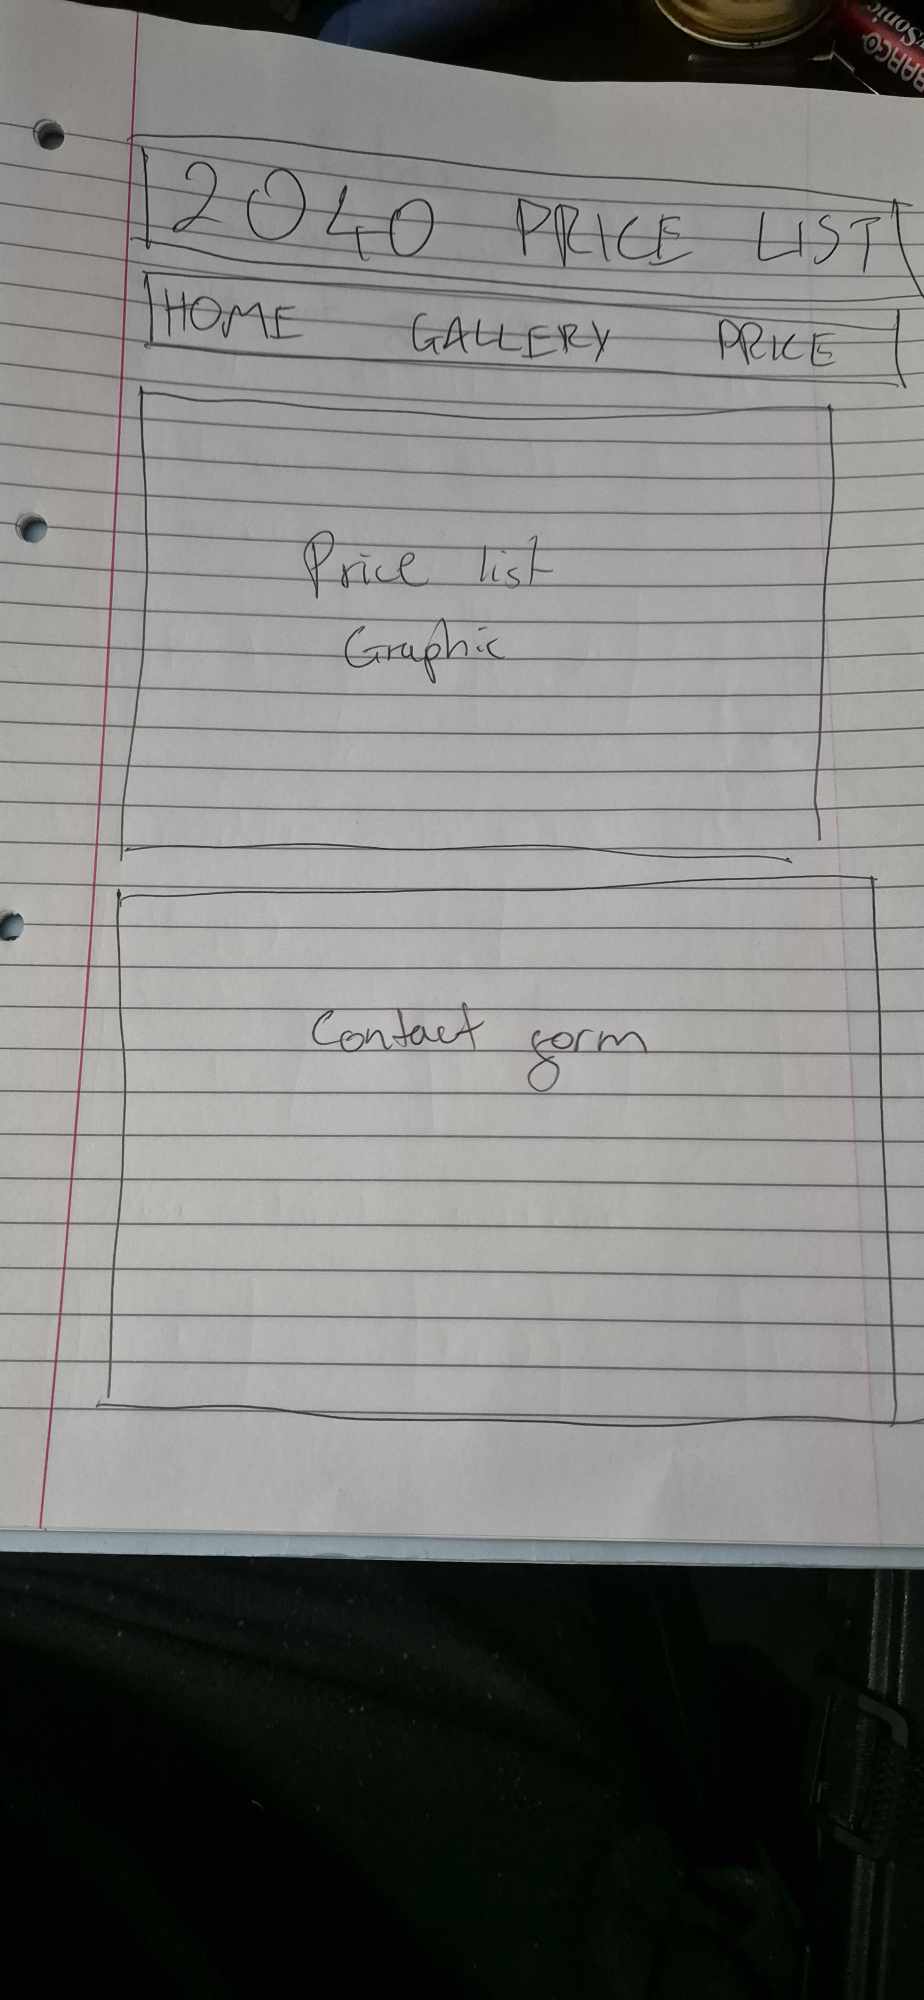 BARCO
Sonic
2040 PRICE LIST
HOME GALLERY PRICE
Price list
Graphic
Contact form